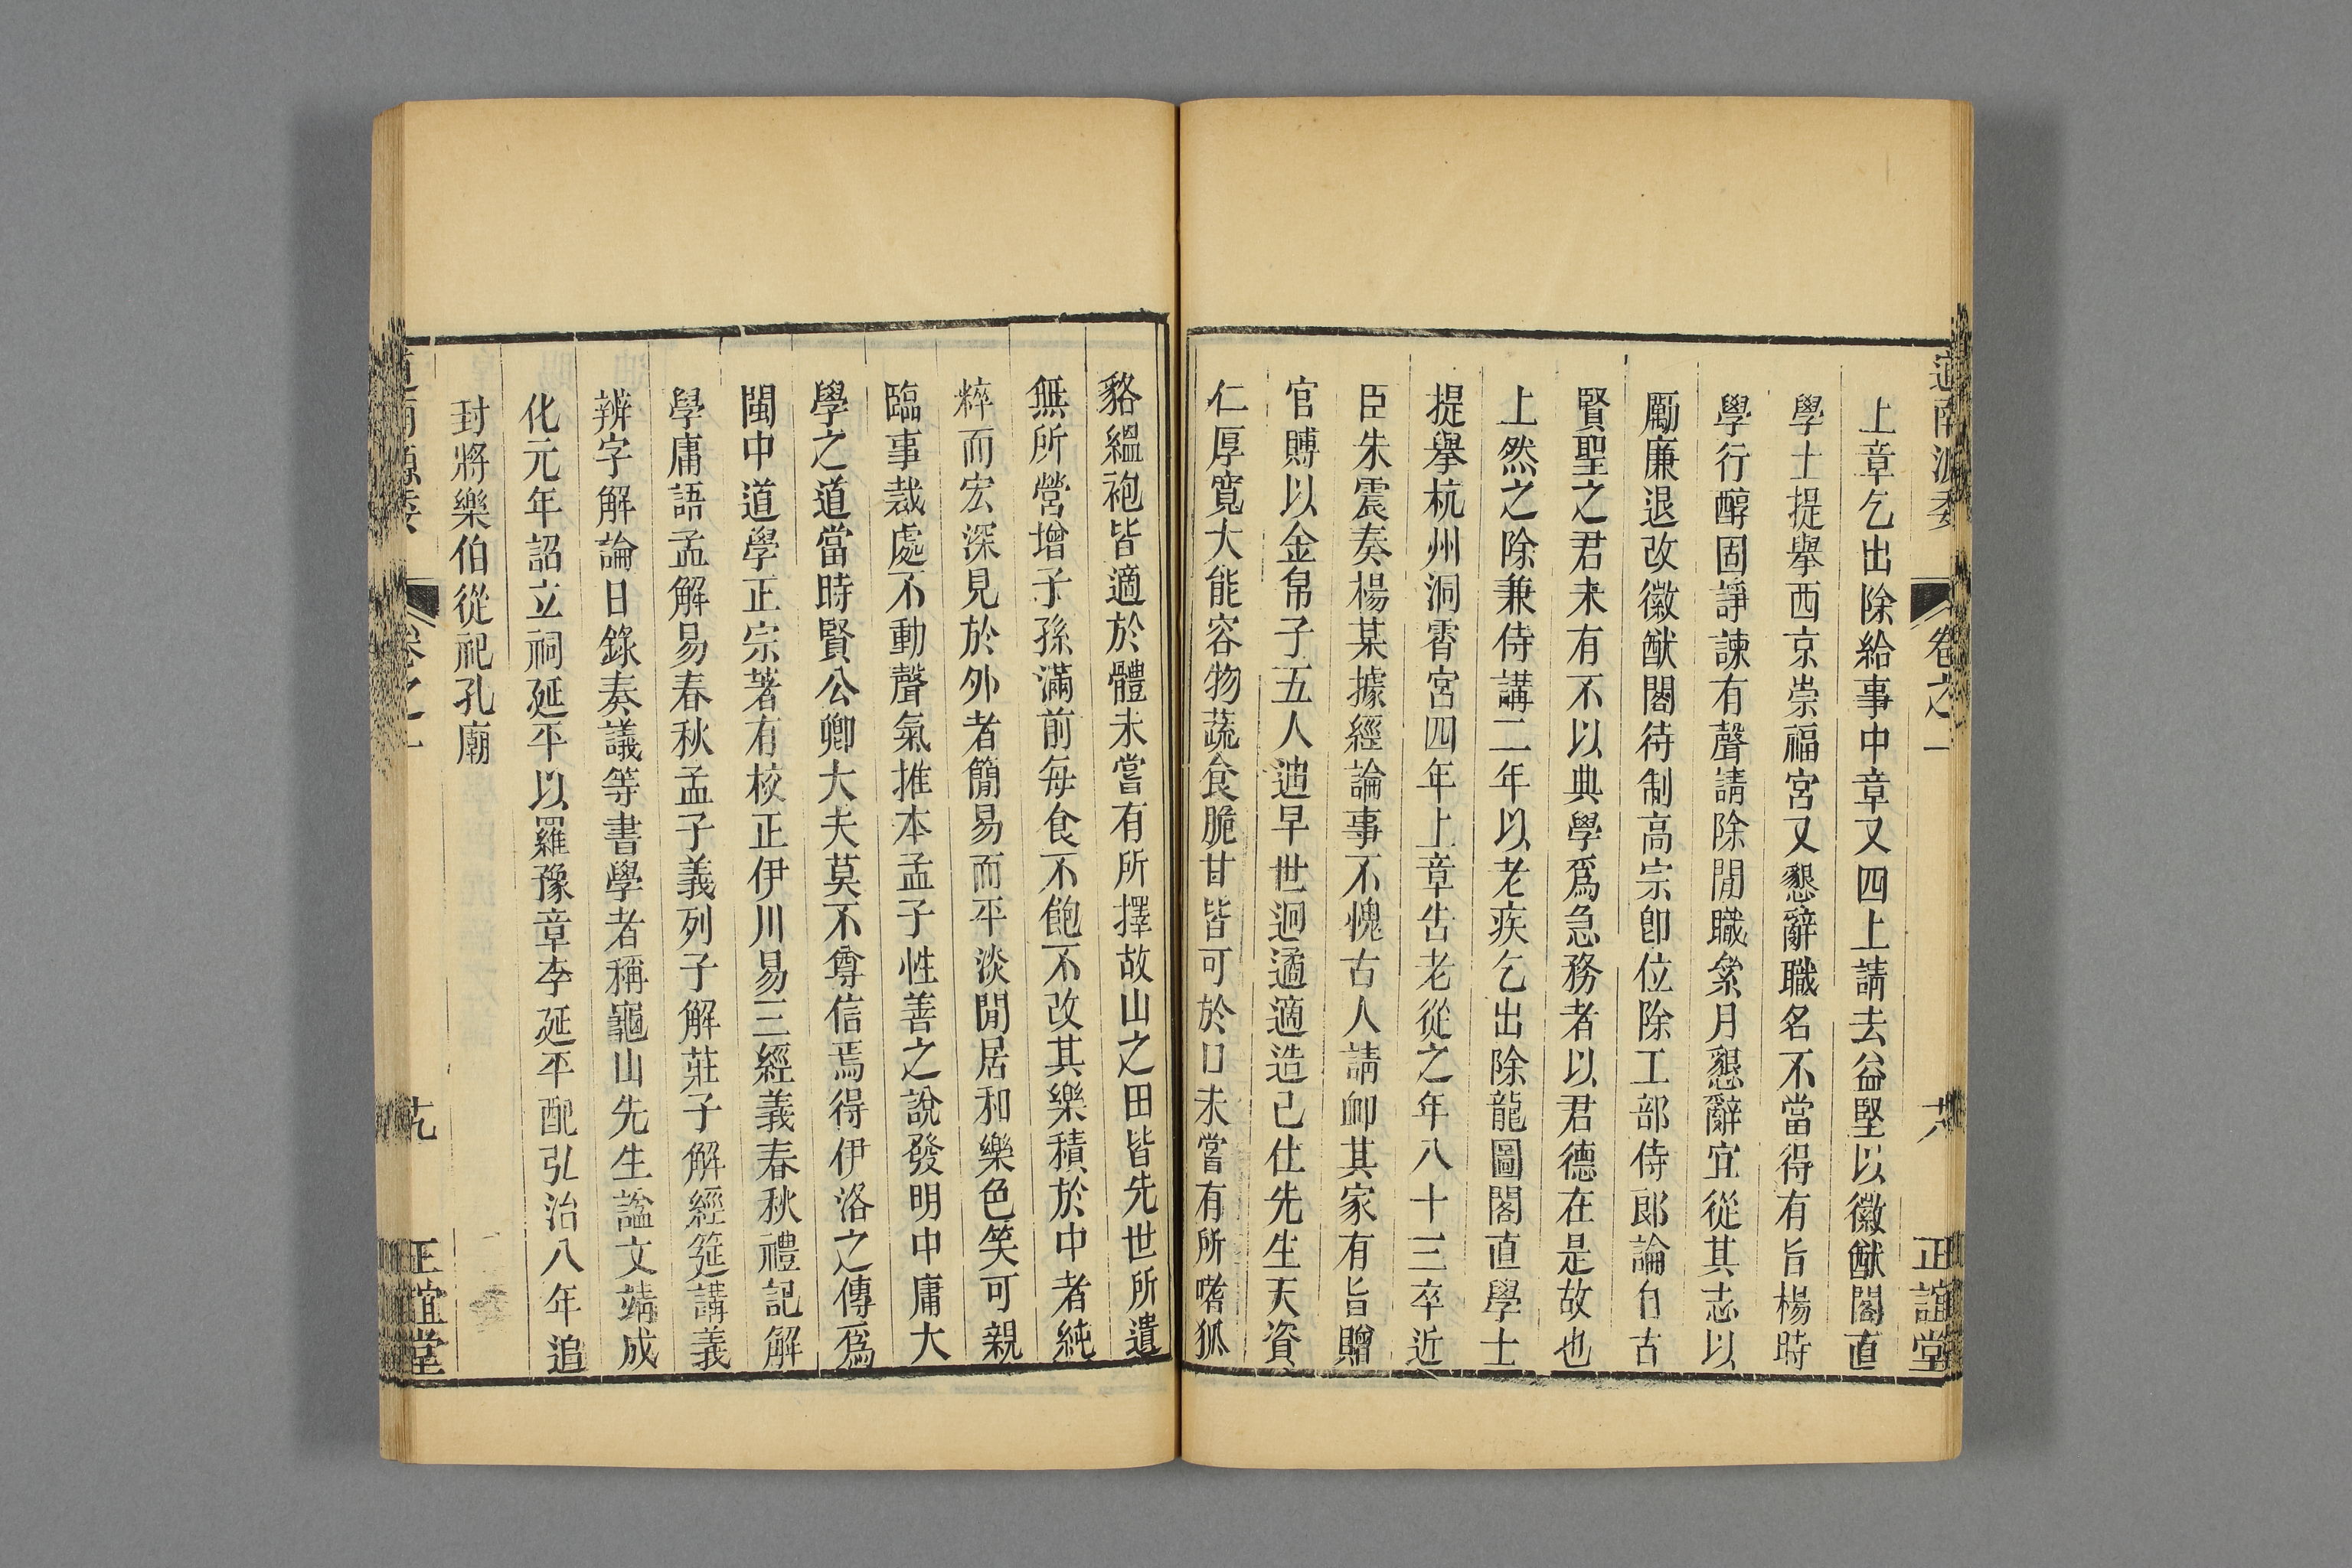 道南源委 卷之一 十八 正誼堂
上章乞出除給事中章又四上請去益堅以徽猷閣直
學士提舉西京崇福宮又懇辭職名不當得有旨楊時
學行醇固諍諫有聲請除閒職累月懇辭宜從其志以
勵廉退改徽猷閣待制高宗卽位除工部侍郎論自古
賢聖之君未有不以典學爲急務者以君德在是故也
上然之除兼侍講二年以老疾乞出除龍圖閣直學士
提舉杭州洞霄宮四年上章告老從之年八十三卒近
臣朱震奏楊某據經論事不愧古人請卹其家有旨贈
官賻以金帛子五人迪早世迥遹適造已仕先生天資
仁厚寬大能容物蔬食脆甘皆可於口未嘗有所嗜狐
貉縕袍皆適於體未嘗有所擇故山之田皆先世所遺
無所營增子孫滿前每食不飽不改其樂積於中者純
粹而宏深見於外者簡易而平淡閒居和樂色笑可親
臨事裁處不動聲氣推本孟子性善之說發明中庸大
學之道當時賢公卿大夫莫不尊信焉得伊洛之傳爲
閩中道學正宗著有校正伊川易三經義春秋禮記解
學庸語孟解易春秋孟子義列子解莊子解經筵講義
辨字解論日錄奏議等書學者稱龜山先生謚文靖成
化元年詔立祠延平以羅豫章李延平配弘治八年追
封將樂伯從祀孔廟
道南源委 卷之一 十九 正誼堂